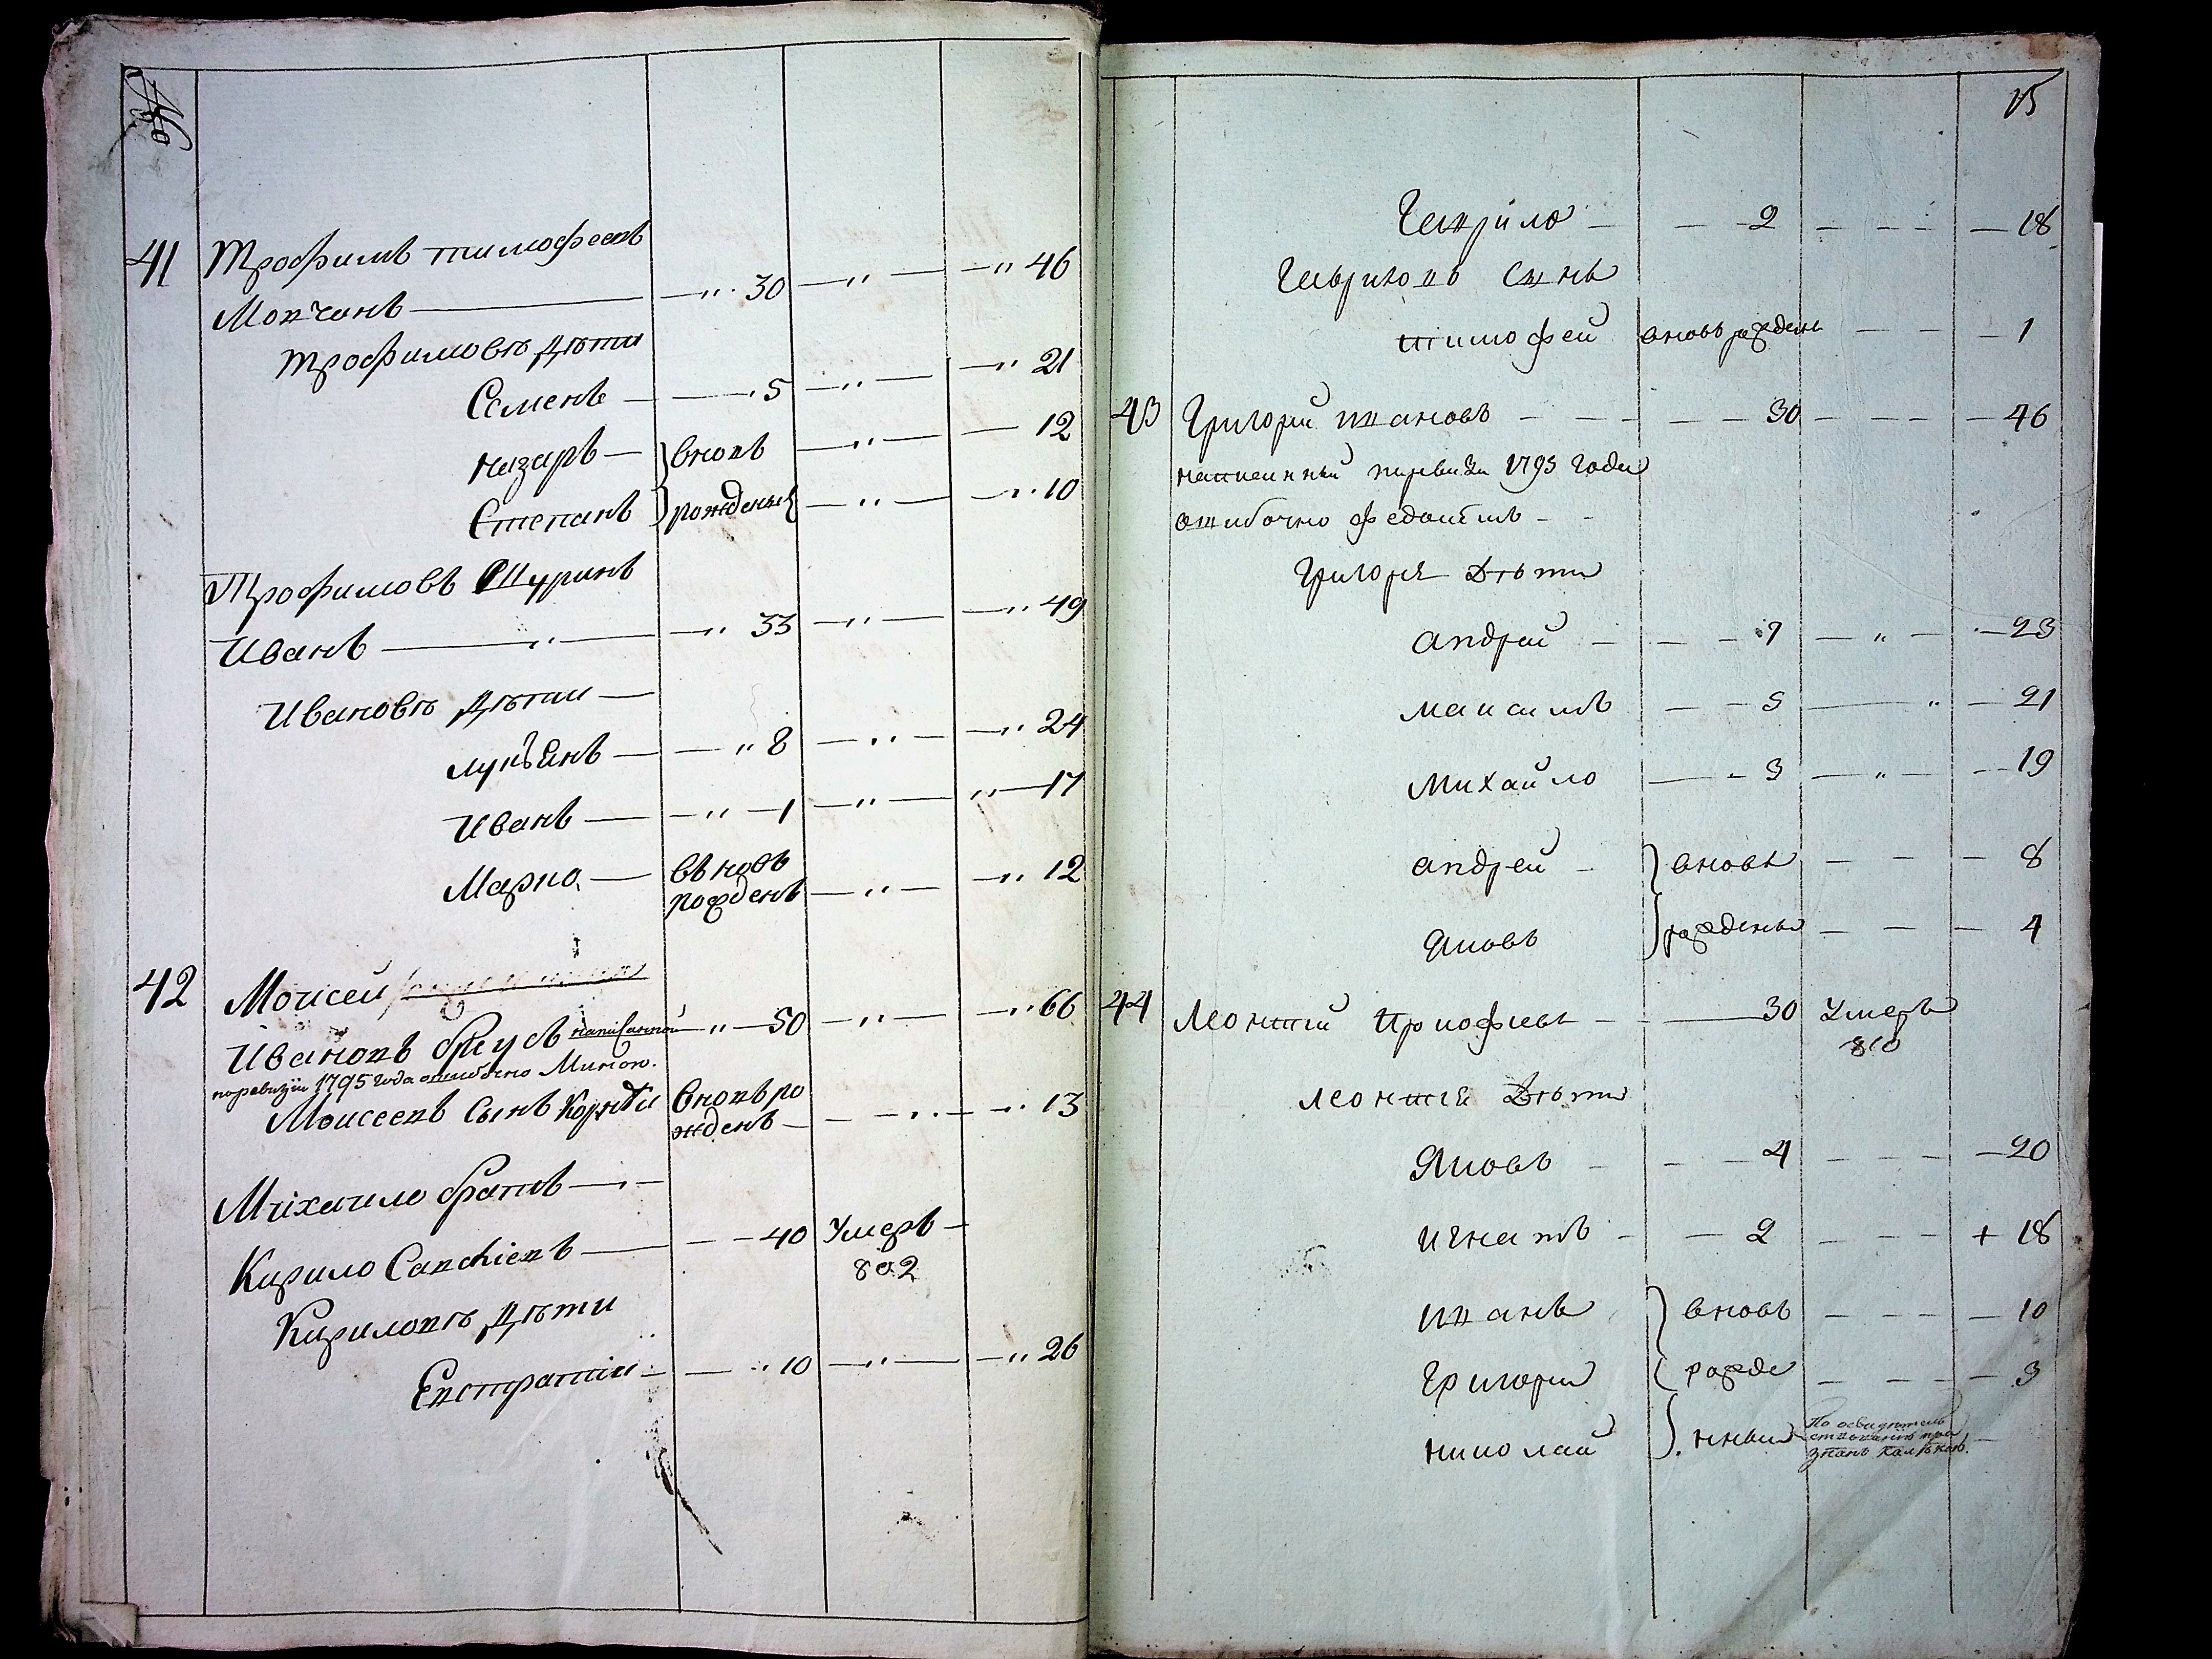 №
41 Трофимъ тимофеевъ
Мовчанъ — 30 — 46
Трофимовы дѣти
Семенъ — 5 — 21
назаръ — вновь — 12
Степанъ рожденыя — 10
Трофимовъ Шуринъ
Иванъ — 33 — 49
Ивановы дѣти —
лукъянъ — 8 — 24
Иванъ — 1 — 17
Марко — въ новь
рожденъ — 12
42 Моисей
Ивановъ бѣусъ написанной — 50 — 66
поревизіи 1795 года ошибочно Миною.
Моисеевъ Сынъ Корнѣй вновь ро
жденъ — 13
Михаило братъ —
Кирило Савchiевъ — 40 Умеръ —
802
Кириловы дѣти
Евстратіи — 10 — 26
15
Гаврило — 2 — 18
Гавриловъ Сынъ
тимофей вновь рожденъ — 1
43 Григорій ивановъ — 30 — 46
написанный поревизіи 1795 года
ошибочно федотомъ
Григорія Дѣти
андрей — 7 — 23
максимъ — 5 — 21
Михайло — 3 — 19
андрей — вновь — 8
Яковъ рожденыя — 4
44 Леонтій Прокофьевъ — 30 Умеръ
810
леонтія Дѣти
Яковъ — 4 — 20
игнатъ — 2 — + 18
иванъ вновь — 10
Григорій рожде — 3
николай нныя По освидѣтель
ствованію при
знанъ калѣкою.